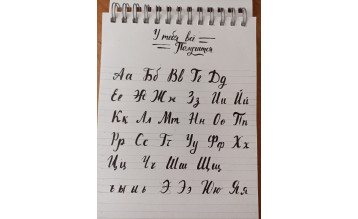 У тебя всё
Получится
Аа Бб Вв Гг Дд
Ее Жж Зз Ии Йй
Кк Лл Мм Нн Оо Пп
Рр Сс Тт Уу Фф Хх
Цц Чч Шш Щщ
ъ ы и ь Ээ Юю Яя